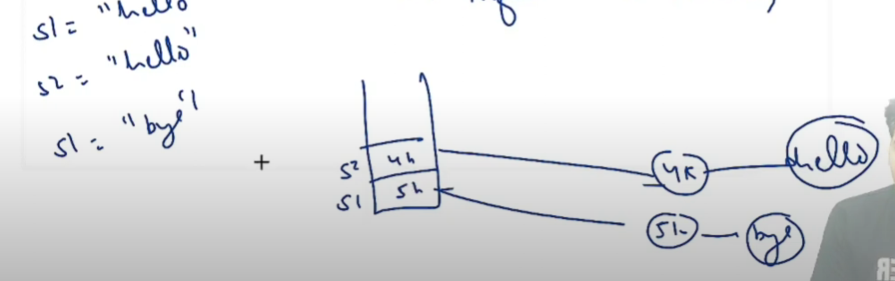 s1 = "hello
s2 = "hello"
s1 = "bye"
s2 4k
s1 5k
4k hello
5k bye